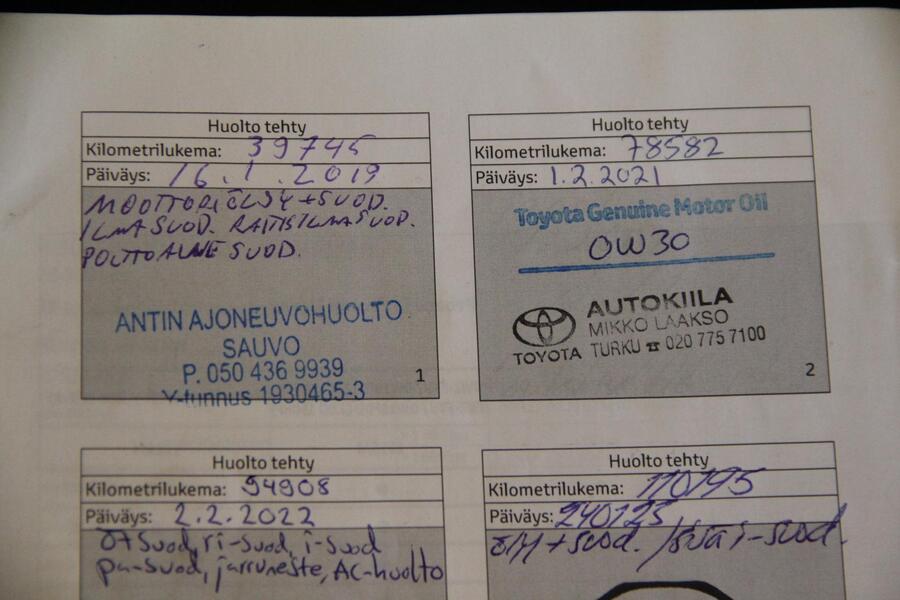 Huolto tehty
Kilometrilukema: 39745
Päiväys: 16.1.2019
MOOTTORIÖLJY+SUOD.
ILMASUOD. RAITISILMASUOD.
POLTTOAINE SUOD.
ANTIN AJONEUVOHUOLTO
SAUVO
P. 050 436 9939
Y-tunnus 1930465-3
1
Huolto tehty
Kilometrilukema: 78582
Päiväys: 1.2.2021
Toyota Genuine Motor Oil
0W30
TOYOTA
AUTOKIILA
MIKKO LAAKSO
TURKU ☎ 020 775 7100
2
Huolto tehty
Kilometrilukema: 94908
Päiväys: 2.2.2022
ö+suod, ri-suod, i-suod
pa-suod, jarruneste, AC-huolto
Huolto tehty
Kilometrilukema: 110195
Päiväys: 240123
öM+suod. / i-suod.